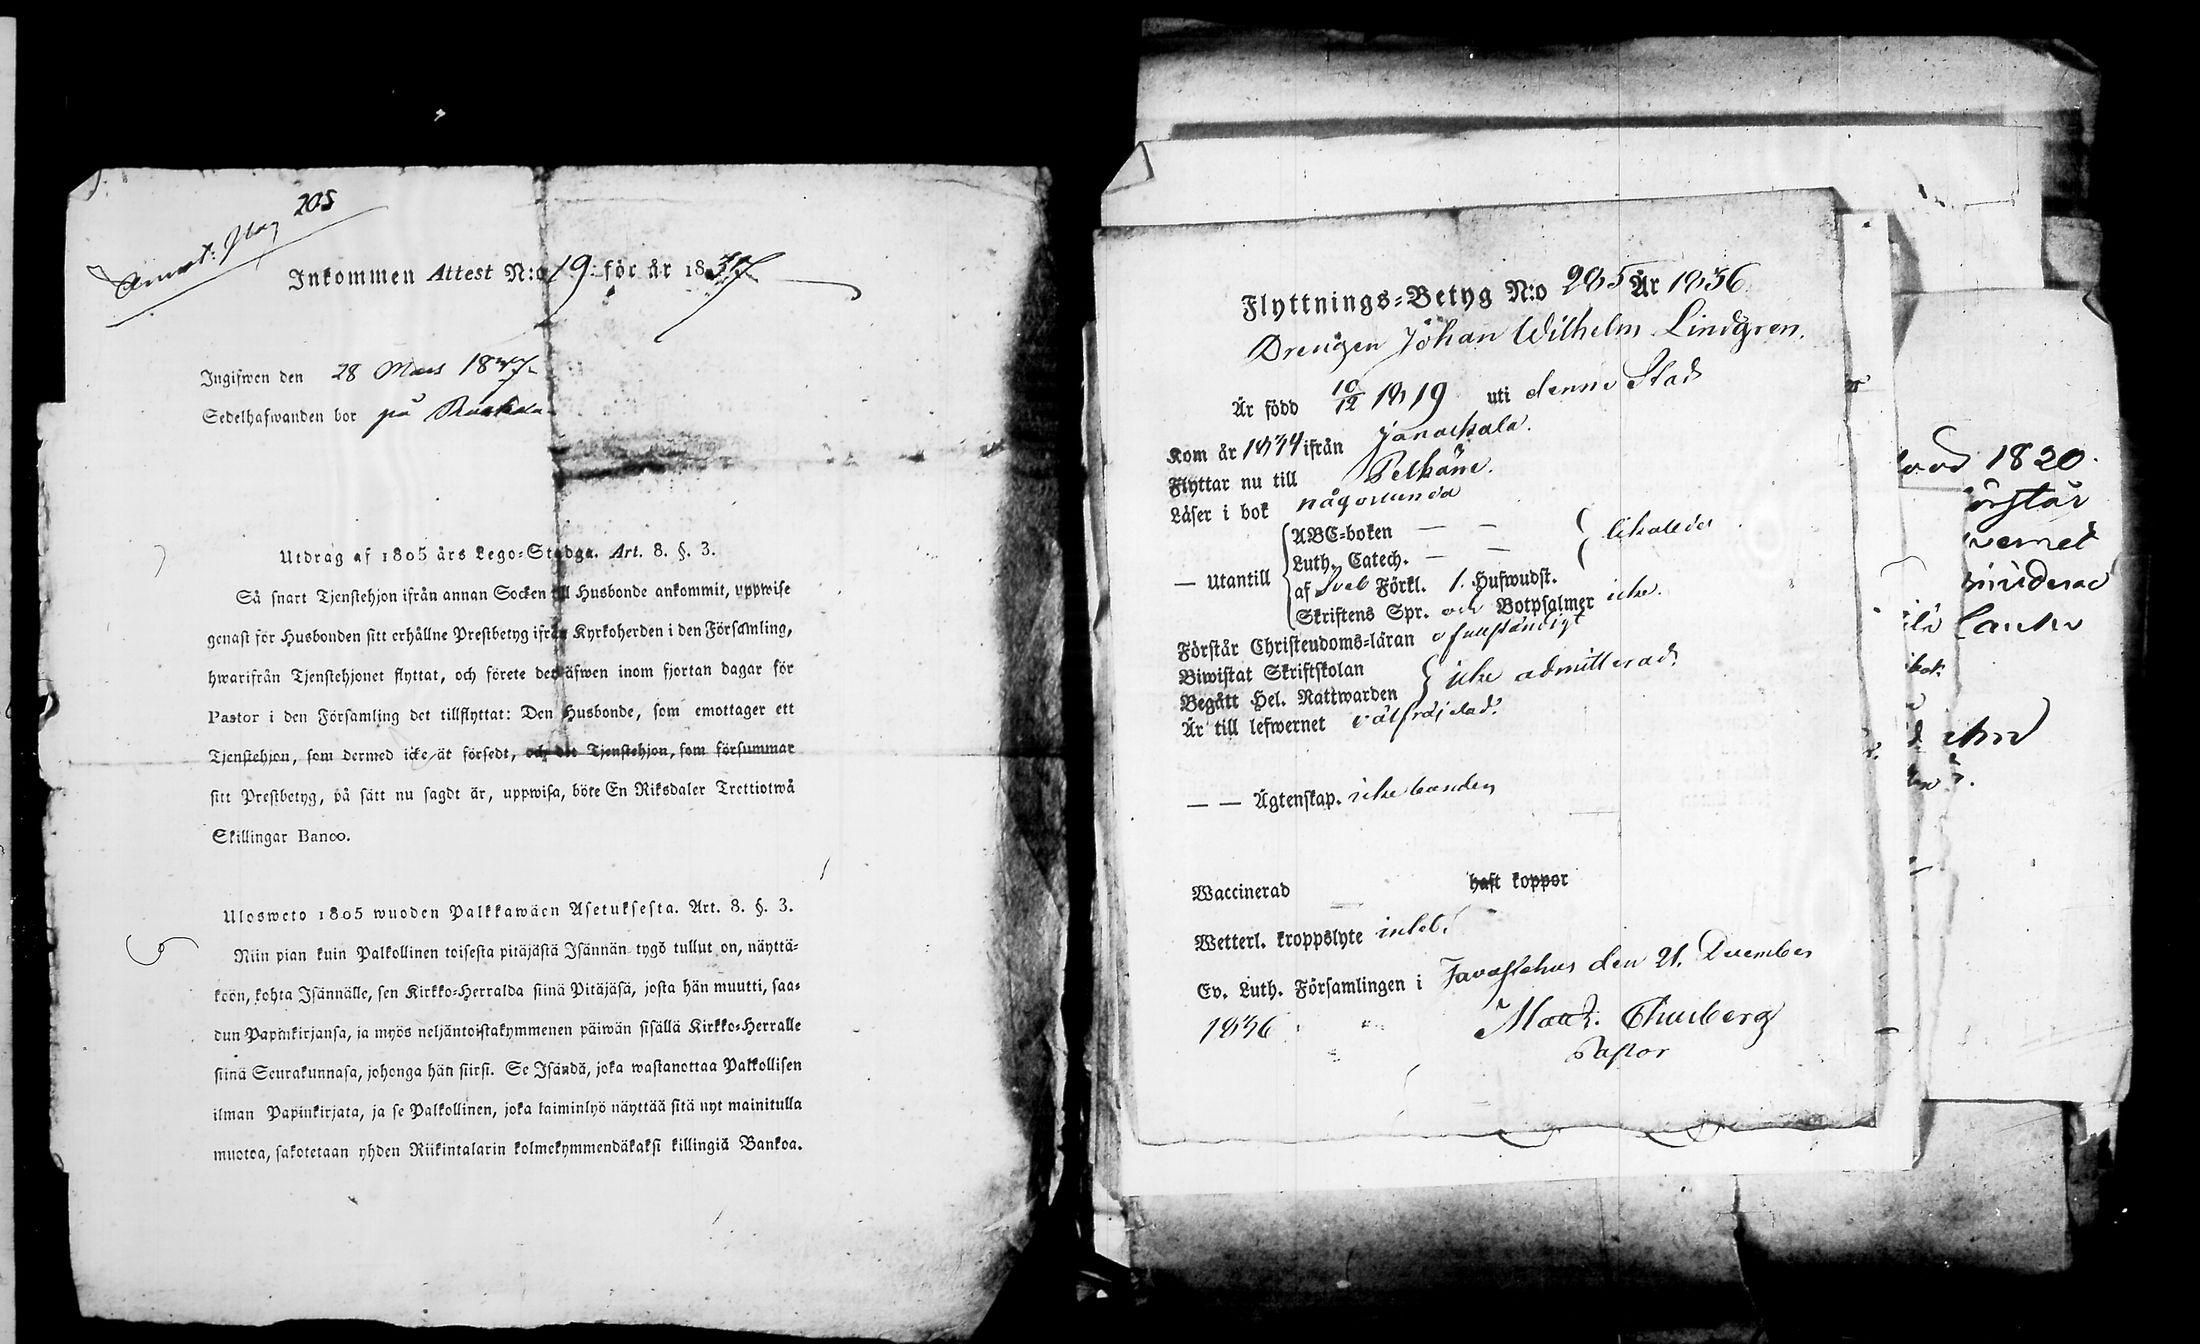 205
Inkommen Attest N:o 19: för år 1837
Ingifwen den 28 Mars 1837.
Sedelhafwanden bor på
Utdrag af 1805 års Lego-Stadga. Art. 8. §. 3.
Så snart Tjenstehjon ifrån annan Socken till Husbonde ankommit, uppwise
genast för Husbonden sitt erhållne Prestbetyg ifrån Kyrkoherden i den Församling,
hwarifrån Tjenstehjonet flyttat, och förete det äfwen inom fjortan dagar för
Pastor i den Församling det tillflyttat: Den Husbonde, som emottager ett
Tjenstehjon, som dermed icke är försedt, och det Tjenstehjon, som försummar
sitt Prestbetyg, på sätt nu sagdt är, uppwisa, böte En Riksdaler Trettiotwå
Skillingar Banco.
Ulosweto 1805 wuoden Palkkawäen Asetuksesta. Art. 8. §. 3.
Niin pian kuin Palkollinen toisesta pitäjästä Isännän tygö tullut on, näyttä-
köön, kohta Isännälle, sen Kirkko-Herralda siinä Pitäjäsä, josta hän muutti, saa-
dun Papinkirjansa, ja myös neljäntoistakymmenen päiwän sisällä Kirkko-Herralle
siinä Seurakunnasa, johonga hän siirsi. Se Isändä, joka wastanottaa Palkollisen
ilman Papinkirjata, ja se Palkollinen, joka laiminlyö näyttää sitä nyt mainitulla
muotoa, sakotetaan yhden Riikintalarin kolmekymmendäkaksi killingiä Bankoa.
Flyttnings-Betyg N:o 285 År 1836
Drengen Johan Wilhelm Lindgren.
Är född 10/12 1819 uti denne Stad
Kom år 1834 ifrån Janackala.
Flyttar nu till Pelkäne.
Läser i bok någorlunda
— Utantill
ABC-boken — —
Luth. Catech. — — likaledes
af Sveb Förkl. 1. Hufwudst.
Skriftens Spr. och Botpsalmer icke.
Förstår Christendoms-läran ofullständigt
Biwistat Skriftskolan
Begått Hel. Nattwarden icke admitterad.
Är till lefwernet oälfräjdad.
— — Ägtenskap. icke bunden
Waccinerad haft koppor
Wetterl. kroppslyte intet.
Ev. Luth. Församlingen i Tavastehus den 21. December
1836 Thunberg
Pastor
1820.
förstår